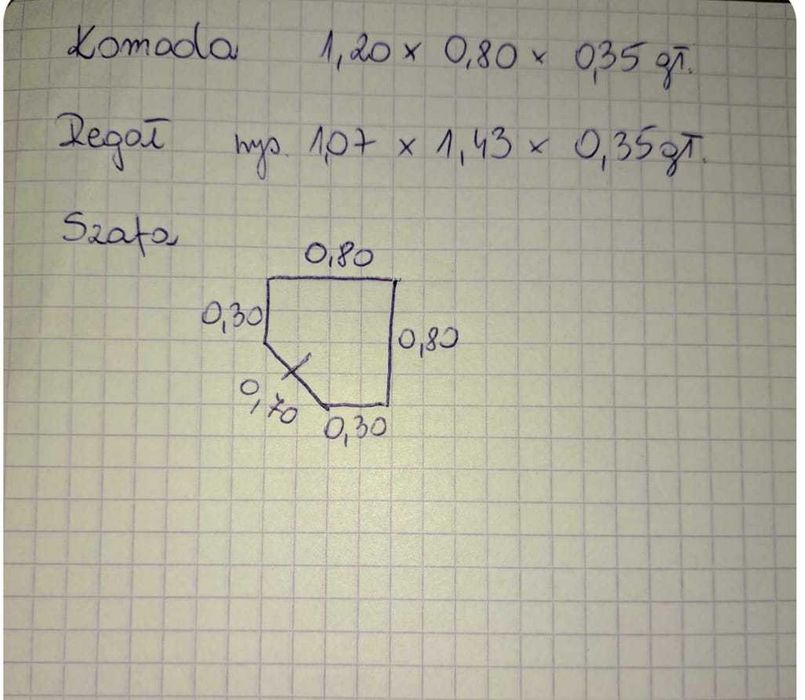 Komoda 1,20 x 0,80 x 0,35 gł.
Regał wys. 1,07 x 1,43 x 0,35 gł.
Szafa
0,80
0,30
0,80
0,70
0,30